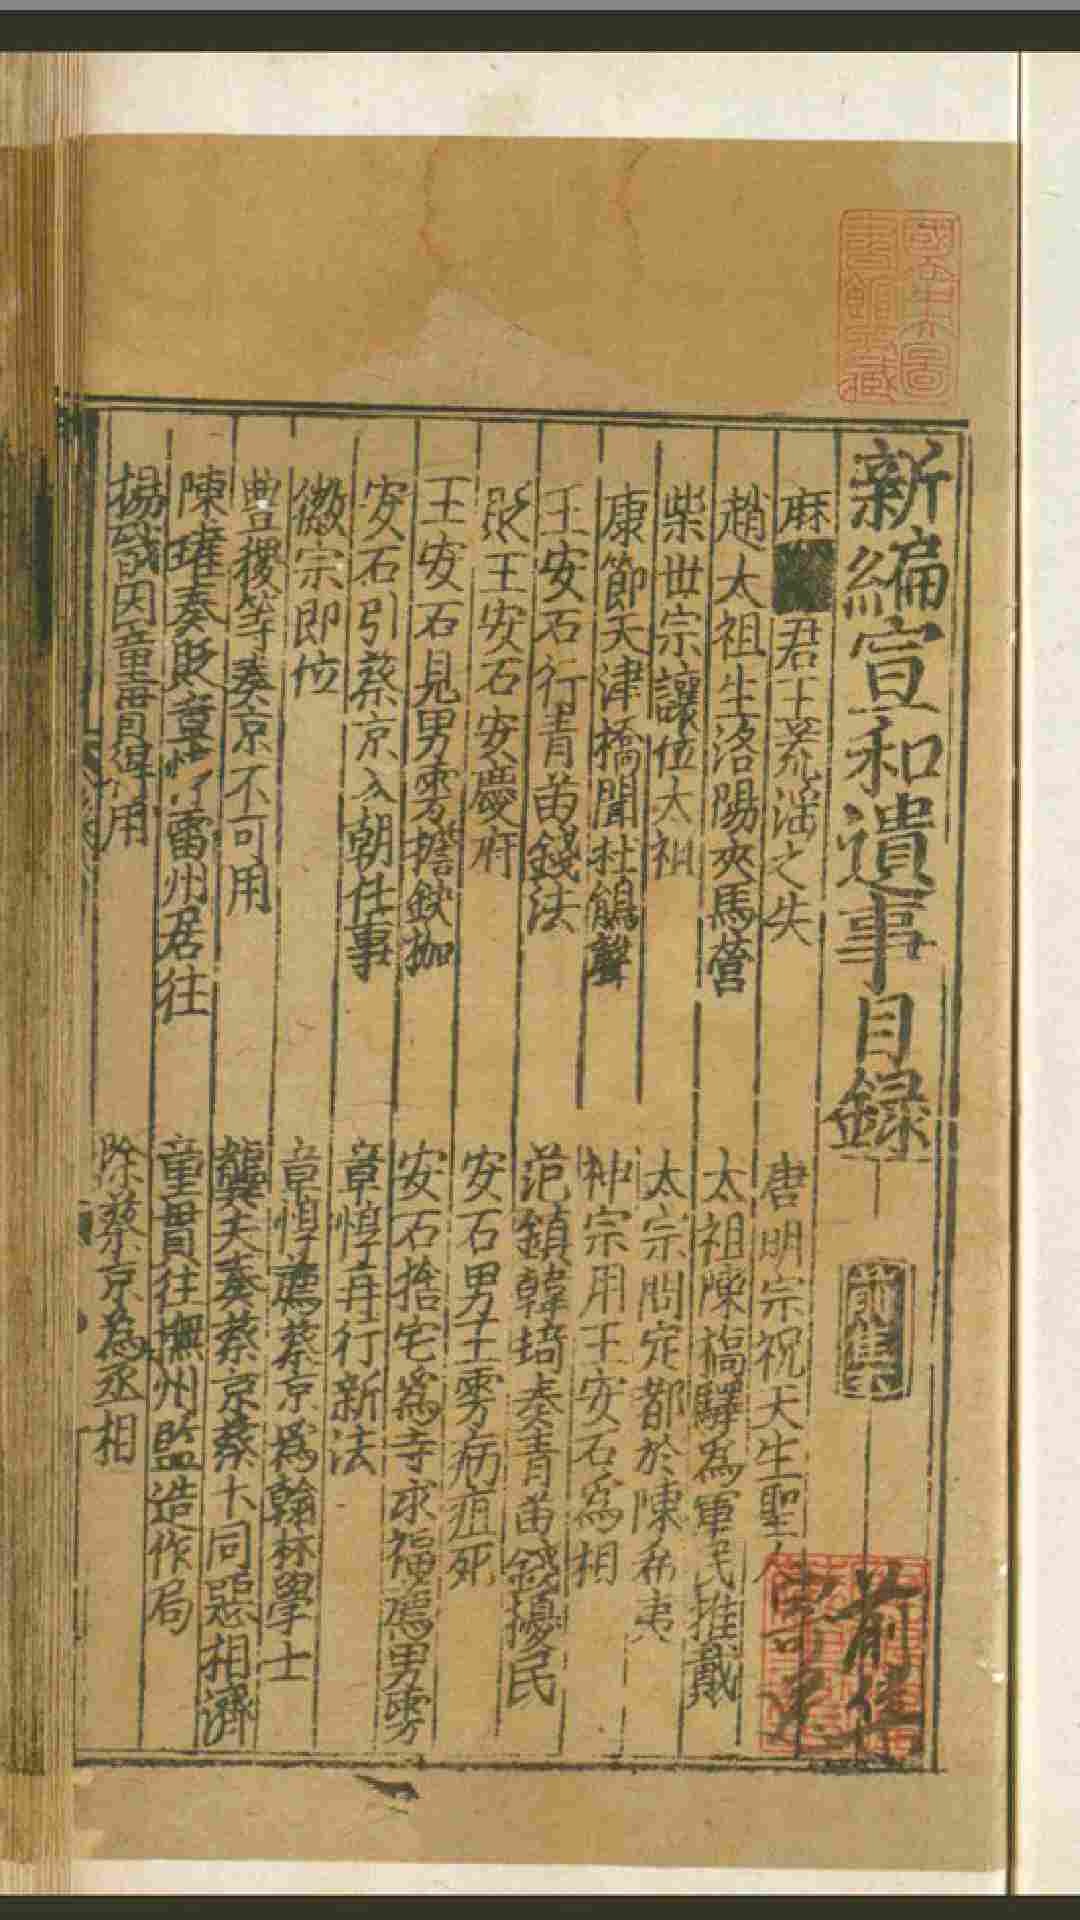 新編宣和遺事目錄
前集
歷君王荒淫之失
唐明宗祝天生聖人
趙太祖生洛陽夾馬營
太祖陳橋驛為軍民推戴
柴世宗讓位太祖
太宗問定都於陳希夷
康節天津橋聞杜鵑聲
神宗用王安石為相
王安石行青苗錢法
范鎮韓琦奏青苗錢擾民
貶王安石安慶府
安石男王雱病疽死
王安石見男雱擔鉄枷
安石捨宅為寺求福薦男雱
安石引蔡京入朝任事
章惇再行新法
徽宗即位
章惇薦蔡京為翰林學士
豊稷等奏京不可用
龔夬奏蔡京蔡卞同惡相濟
陳瓘奏貶章惇雷州居住
童貫往撫州監造作局
楊戩因童貫得用
除蔡京為丞相
國立中央圖書館考藏